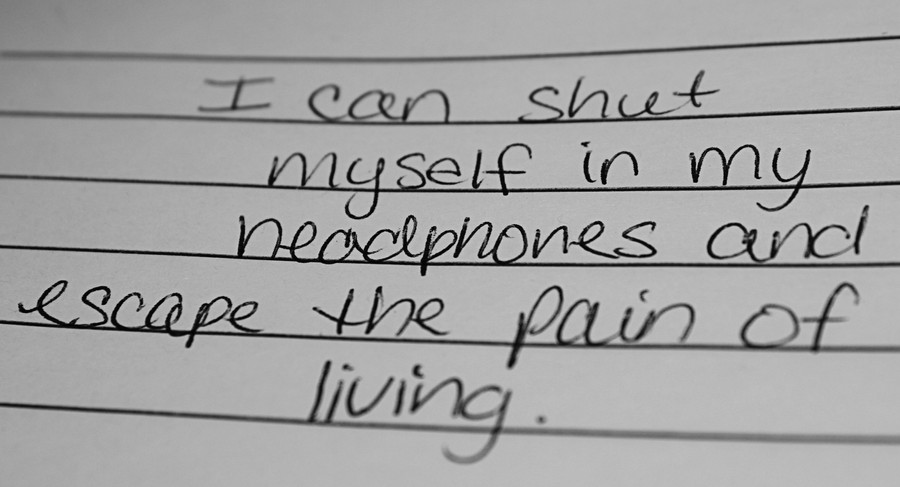 I can shut
myself in my
headphones and
escape the pain of
living.